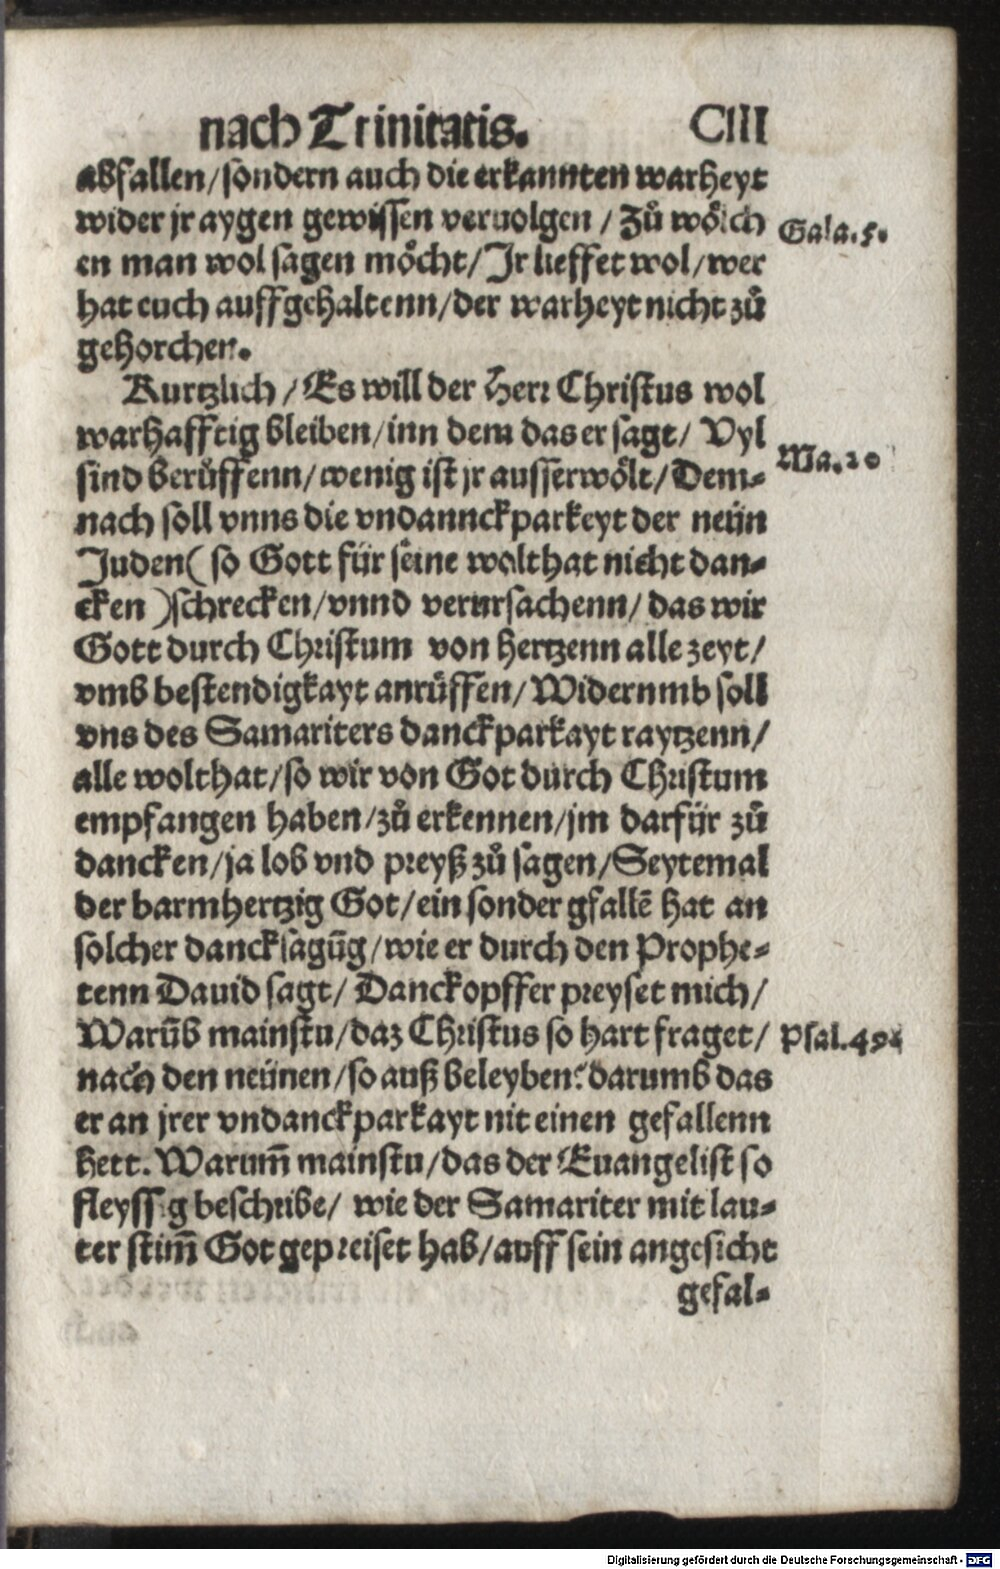 nach Trinitatis. CIII
abfallen/sondern auch die erkannten warheyt
wider jr aygen gewissen veruolgen / Zů wölch
Gala.5.
en man wol sagen möcht/Jr lieffet wol/wer
hat euch auffgehaltenn/der warheyt nicht zů
gehorchen.
Kurtzlich /Es will der Herr Christus wol
warhafftig bleiben/inn dem das er sagt/ Vyl
Ma.20
sind berůffenn/wenig ist jr ausserwölt/Dem-
nach soll vnns die vndannckparkeyt der neün
Juden(so Gott für seine wolthat nicht dan-
cken )schrecken/vnnd verursachenn/das wir
Gott durch Christum von hertzenn alle zeyt/
vmb bestendigkayt anrůffen/Widerumb soll
vns des Samariters danckparkayt raytzenn/
alle wolthat/so wir von Got durch Christum
empfangen haben/zů erkennen/jm darfür zů
dancken/ja lob vnd preyß zů sagen/Seytemal
der barmhertzig Got/ein sonder gfallē hat an
solcher dancksagūg/wie er durch den Prophe-
tenn Dauid sagt/ Danckopffer preyset mich/
Warūb mainstu/daz Christus so hart fraget/
Psal.49.
nach den neünen/so auß beleyben? darumb das
er an jrer vndanckparkayt nit einen gefallenn
hett. Warum̄ mainstu/das der Euangelist so
fleyssig beschribe/ wie der Samariter mit lau-
ter stim̄ Got gepreiset hab/auff sein angesicht
gefal-
Digitalisierung gefördert durch die Deutsche Forschungsgemeinschaft - DFG